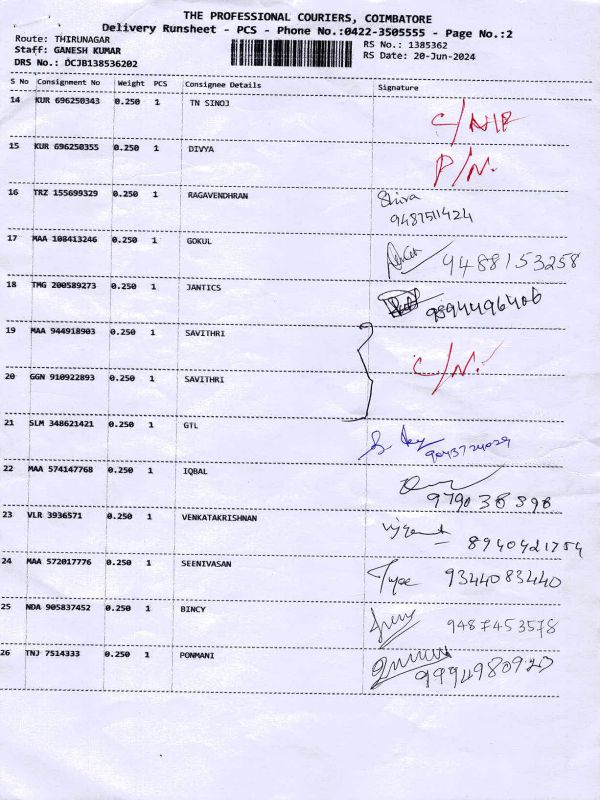 THE PROFESSIONAL COURIERS, COIMBATORE
Delivery Runsheet - PCS - Phone No.:0422-3505555 - Page No.:2
Route: THIRUNAGAR
RS No.: 1385362
Staff: GANESH KUMAR
RS Date: 20-Jun-2024
DRS No.: DCJB138536202
S No Consignment No Weight PCS Consignee Details Signature
14 KUR 696250343 0.250 1 TN SINOJ
15 KUR 696250355 0.250 1 DIVYA P/N.
16 TRZ 155699329 0.250 1 RAGAVENDHRAN Shiva
9487511424
17 MAA 108413246 0.250 1 GOKUL 9488153258
18 TMG 200589273 0.250 1 JANTICS 9894496406
19 MAA 944918903 0.250 1 SAVITHRI C/N.
20 GGN 910922893 0.250 1 SAVITHRI
21 SLM 348621421 0.250 1 GTL 9043724029
22 MAA 574147768 0.250 1 IQBAL
23 VLR 3936571 0.250 1 VENKATAKRISHNAN 8940421754
24 MAA 572017776 0.250 1 SEENIVASAN 9344083440
25 NDA 905837452 0.250 1 BINCY 9487453578
26 TNJ 7514333 0.250 1 PONMANI